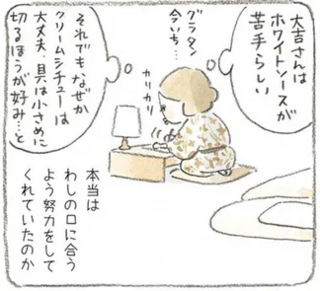 大吉さんは
ホワイトソースが
苦手らしい
グラタン
今いち…
カリカリ
それでもなぜか
クリームシチューは
大丈夫。具は小さめに
切るほうが好み…と
本当は
わしの口に合う
よう努力をして
くれていたのか